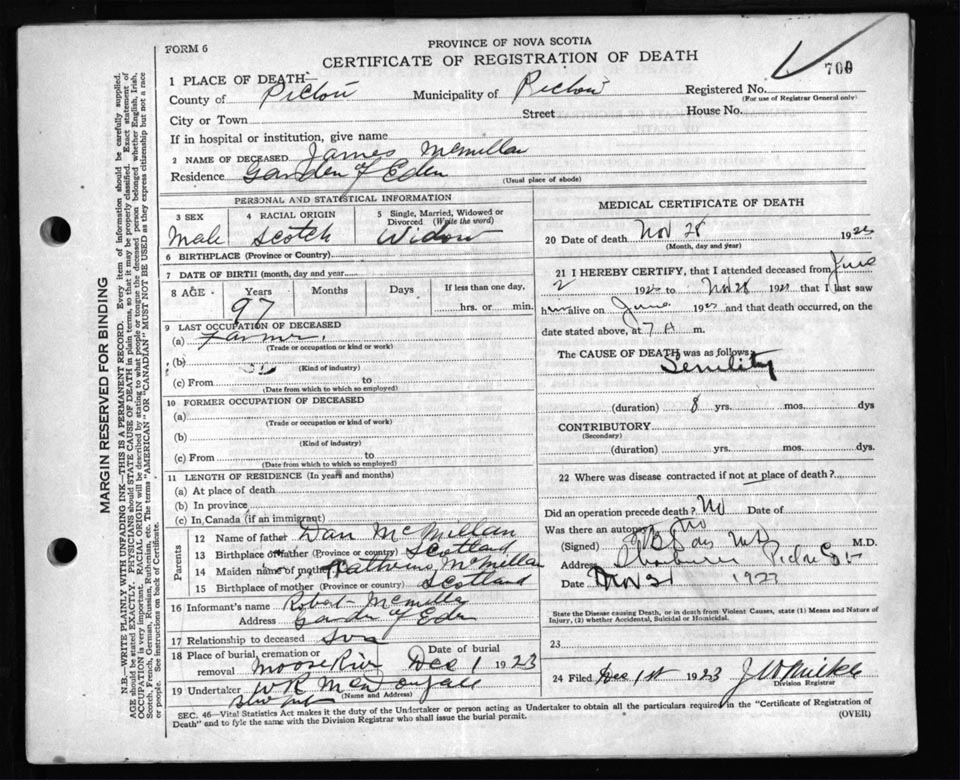 FORM 6
PROVINCE OF NOVA SCOTIA
CERTIFICATE OF REGISTRATION OF DEATH
700
1 PLACE OF DEATH—
County of Pictou Municipality of Pictou Registered No.
(For use of Registrar General only)
City or Town Street House No.
If in hospital or institution, give name
2 NAME OF DECEASED James McMillan
Residence Garden of Eden
(Usual place of abode)
PERSONAL AND STATISTICAL INFORMATION
3 SEX 4 RACIAL ORIGIN 5 Single, Married, Widowed or Divorced (Write the word)
Male Scotch Widow
6 BIRTHPLACE (Province or Country)
7 DATE OF BIRTH (month, day and year)
8 AGE Years Months Days If less than one day,
97 hrs. or min.
9 LAST OCCUPATION OF DECEASED
(a) Farmer
(Trade or occupation or kind or work)
(b)
(Kind of industry)
(c) From to
(Date from which to which so employed)
10 FORMER OCCUPATION OF DECEASED
(a)
(Trade or occupation or kind of work)
(b)
(Kind of industry)
(c) From to
(Date from which to which so employed)
11 LENGTH OF RESIDENCE (In years and months)
(a) At place of death
(b) In province
(c) In Canada (if an immigrant)
Parents
12 Name of father Dan McMillan
13 Birthplace of father (Province or country) Scotland
14 Maiden name of mother McMillan
15 Birthplace of mother (Province or country) Scotland
16 Informant's name Robert McMillan
Address Garden of Eden
17 Relationship to deceased Son
18 Place of burial, cremation or removal Moose River Date of burial Dec 1 1923
19 Undertaker W R
(Name and Address)
MEDICAL CERTIFICATE OF DEATH
20 Date of death Nov 28 192
(Month, day and year)
21 I HEREBY CERTIFY, that I attended deceased from June
2 192 to Nov 28 192 that I last saw
h alive on June 192 and that death occurred, on
date stated above, at 7 A m.
The CAUSE OF DEATH was as follows:
Senility
(duration) 8 yrs. mos. dys
CONTRIBUTORY
(Secondary)
(duration) yrs. mos. dys
22 Where was disease contracted if not at place of death?
Did an operation precede death? No Date of
Was there an autopsy? No
(Signed) M.D.
Address
Date Nov 1923
State the Disease causing Death, or in death from Violent Causes, state (1) Means and Nature of Injury, (2) whether Accidental, Suicidal or Homicidal.
23
24 Filed Dec 1st 1923
Division Registrar
SEC. 46—Vital Statistics Act makes it the duty of the Undertaker or person acting as Undertaker to obtain all the particulars required in the "Certificate of Registration of Death" and to fyle the same with the Division Registrar who shall issue the burial permit.
(OVER)
MARGIN RESERVED FOR BINDING
N.B.—WRITE PLAINLY WITH UNFADING INK—THIS IS A PERMANENT RECORD. Every item of information should be carefully supplied.
AGE should be stated EXACTLY. PHYSICIANS should STATE CAUSE OF DEATH in plain terms, so that it may be properly classified. Exact statement of
OCCUPATION is very important. RACIAL ORIGIN will be described by stating to what people or tongue the deceased person belonged whether English, Irish,
Scotch, French, German, Russian, Ruthenian, etc. The terms "AMERICAN" OR "CANADIAN" MUST NOT BE USED as they express citizenship but not a race
or people. See instructions on back of Certificate.